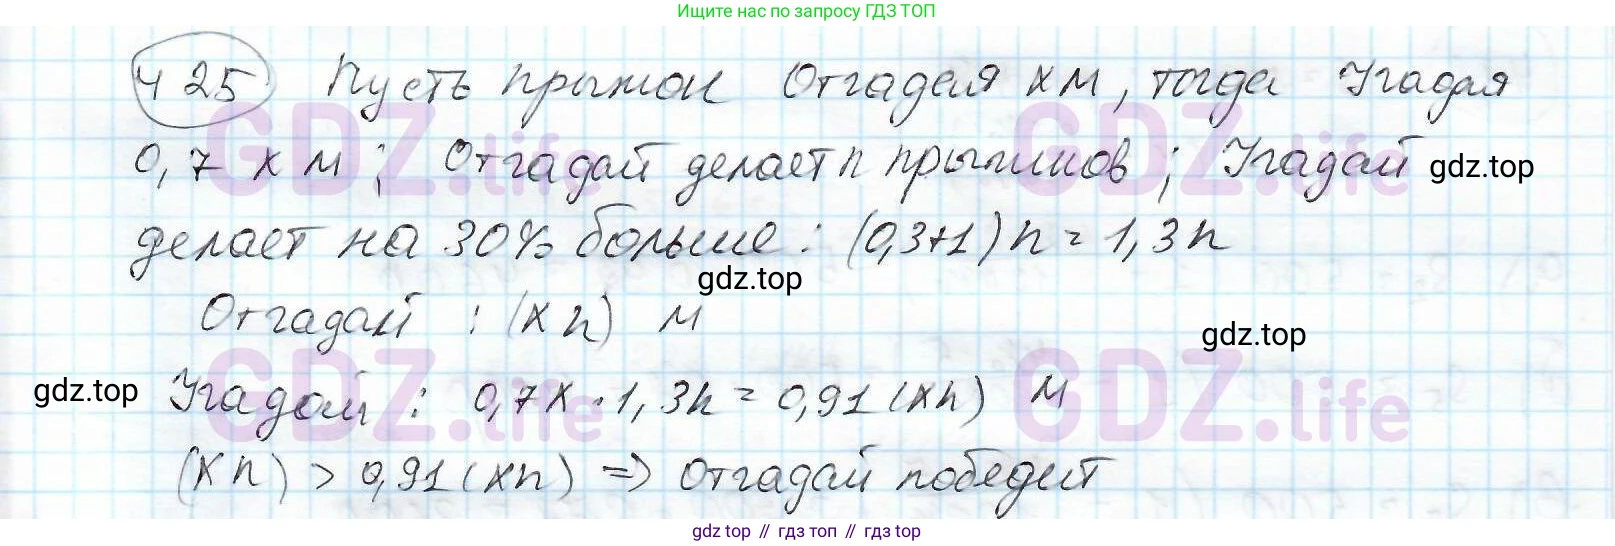 Ищите нас по запросу ГДЗ ТОП
425 Пусть прыжок Отгадая х м, тогда Угадая
0,7 х м ; Отгадай делает n прыжков ; Угадай
gdz.top
делает на 30% больше : (0,3+1) n = 1,3n
gdz.top
Отгадай : (х n) м
gdz.top
gdz.top
Угадай : 0,7х · 1,3n = 0,91 (хn) м
(хn) > 0,91 (хn) => Отгадай победит
GDZ.life
GDZ.life
GDZ.life
GDZ.life
gdz top // гдз топ // гдз top